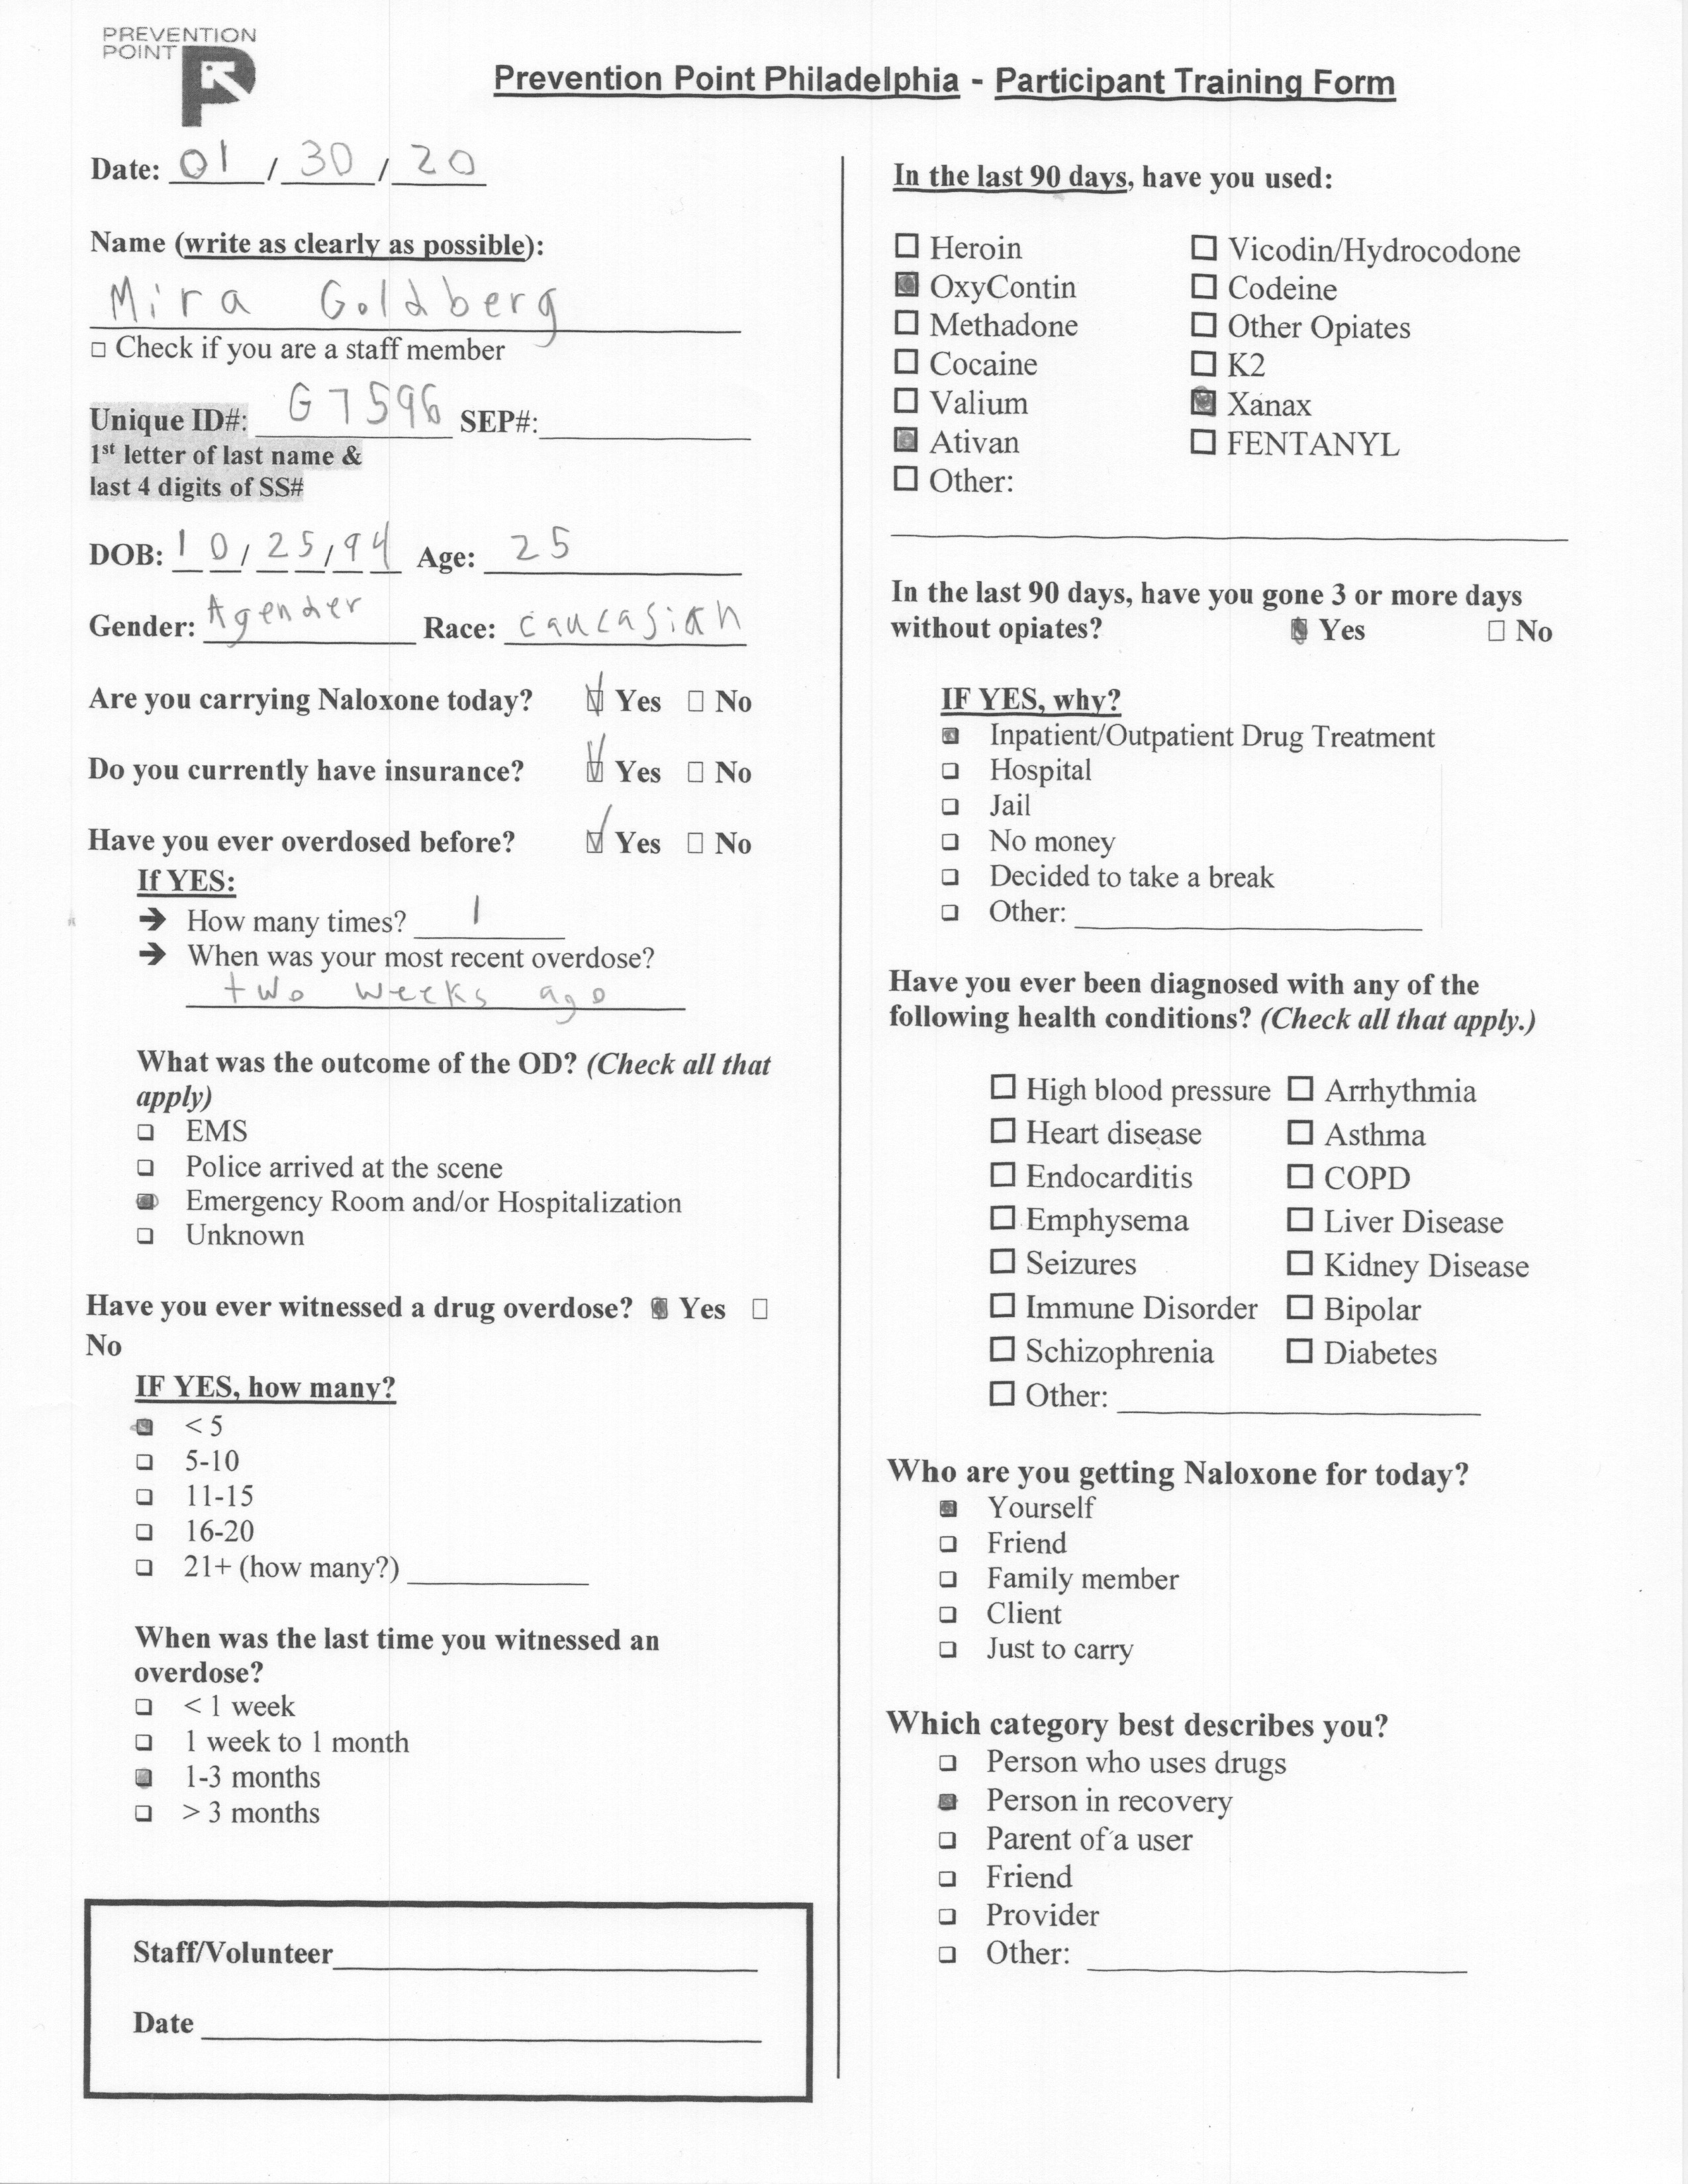 PREVENTION
POINT
Prevention Point Philadelphia - Participant Training Form
Date: 01 / 30 / 20
Name (write as clearly as possible):
Mira Goldberg
☐ Check if you are a staff member
Unique ID#: G7596 SEP#:
1st letter of last name &
last 4 digits of SS#
DOB: 10/25/94 Age: 25
Gender: Agender Race: caucasian
Are you carrying Naloxone today? ☑ Yes ☐ No
Do you currently have insurance? ☑ Yes ☐ No
Have you ever overdosed before? ☑ Yes ☐ No
If YES:
➔ How many times? 1
➔ When was your most recent overdose?
two weeks ago
What was the outcome of the OD? (Check all that
apply)
☐ EMS
☐ Police arrived at the scene
☑ Emergency Room and/or Hospitalization
☐ Unknown
Have you ever witnessed a drug overdose? ☑ Yes ☐
No
IF YES, how many?
☑ < 5
☐ 5-10
☐ 11-15
☐ 16-20
☐ 21+ (how many?)
When was the last time you witnessed an
overdose?
☐ < 1 week
☐ 1 week to 1 month
☑ 1-3 months
☐ > 3 months
Staff/Volunteer
Date
In the last 90 days, have you used:
☐ Heroin ☐ Vicodin/Hydrocodone
☑ OxyContin ☐ Codeine
☐ Methadone ☐ Other Opiates
☐ Cocaine ☐ K2
☐ Valium ☑ Xanax
☑ Ativan ☐ FENTANYL
☐ Other:
In the last 90 days, have you gone 3 or more days
without opiates? ☑ Yes ☐ No
IF YES, why?
☑ Inpatient/Outpatient Drug Treatment
☐ Hospital
☐ Jail
☐ No money
☐ Decided to take a break
☐ Other:
Have you ever been diagnosed with any of the
following health conditions? (Check all that apply.)
☐ High blood pressure ☐ Arrhythmia
☐ Heart disease ☐ Asthma
☐ Endocarditis ☐ COPD
☐ Emphysema ☐ Liver Disease
☐ Seizures ☐ Kidney Disease
☐ Immune Disorder ☐ Bipolar
☐ Schizophrenia ☐ Diabetes
☐ Other:
Who are you getting Naloxone for today?
☑ Yourself
☐ Friend
☐ Family member
☐ Client
☐ Just to carry
Which category best describes you?
☐ Person who uses drugs
☑ Person in recovery
☐ Parent of a user
☐ Friend
☐ Provider
☐ Other: